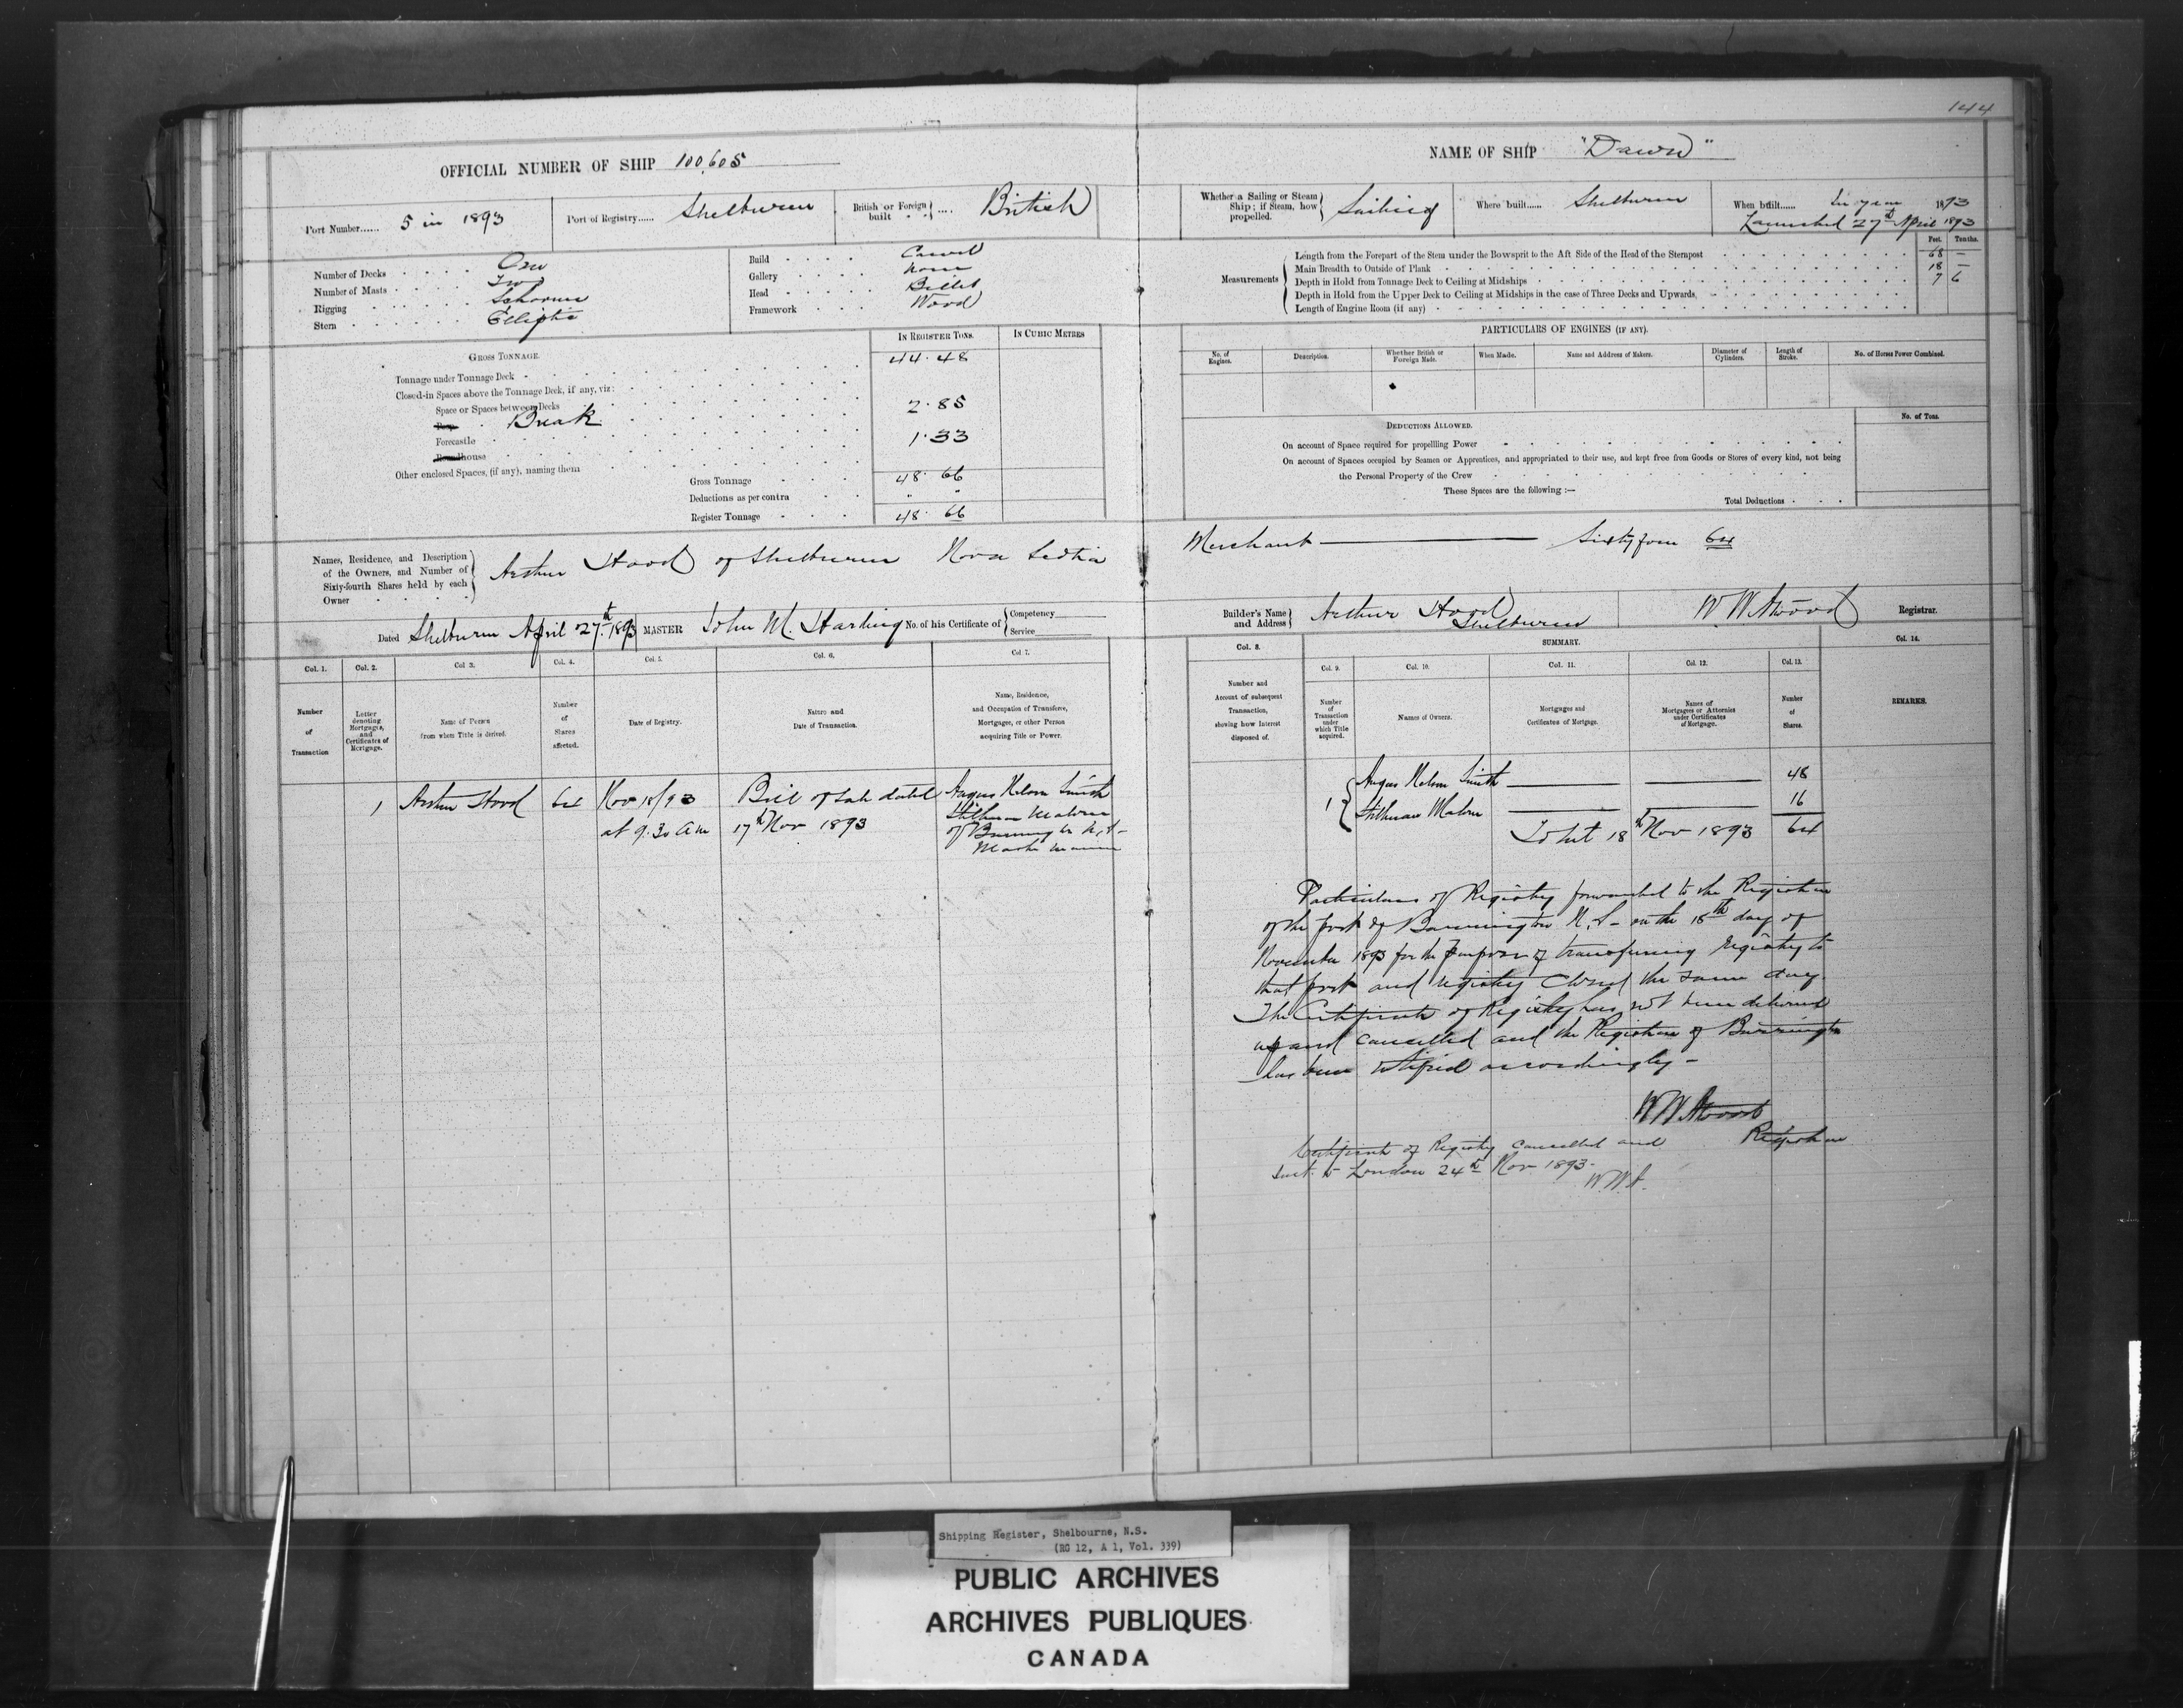 144
OFFICIAL NUMBER OF SHIP 100,605
NAME OF SHIP "Dawn"
Port Number...... 5 in 1893
Port of Registry...... Shelburne
British or Foreign built .... British
Whether a Sailing or Steam Ship; if Steam, how propelled. Sailing
Where built...... Shelburne
When built...... In year 1893
Launched 27th April 1893
Number of Decks One
Number of Masts Two
Rigging Schooner
Stern Elliptic
Build Carvel
Gallery None
Head Billet
Framework Wood
Measurements
Feet. Tenths.
Length from the Forepart of the Stem under the Bowsprit to the Aft Side of the Head of the Sternpost 68 —
Main Breadth to Outside of Plank 18 —
Depth in Hold from Tonnage Deck to Ceiling at Midships 7 6
Depth in Hold from the Upper Deck to Ceiling at Midships in the case of Three Decks and Upwards,
Length of Engine Room (if any)
GROSS TONNAGE.
IN REGISTER TONS.
IN CUBIC METRES
Tonnage under Tonnage Deck 44.48
Closed-in Spaces above the Tonnage Deck, if any, viz:
Space or Spaces between Decks
Break 2.85
Forecastle 1.33
Other enclosed Spaces, (if any), naming them
Gross Tonnage 48.66
Deductions as per contra " "
Register Tonnage 48.66
PARTICULARS OF ENGINES (IF ANY).
No. of Engines.
Description.
Whether British or Foreign Made.
When Made.
Name and Address of Makers.
Diameter of Cylinders.
Length of Stroke.
No. of Horses Power Combined.
DEDUCTIONS ALLOWED.
No. of Tons.
On account of Space required for propelling Power
On account of Spaces occupied by Seamen or Apprentices, and appropriated to their use, and kept free from Goods or Stores of every kind, not being
the Personal Property of the Crew
These Spaces are the following :—
Total Deductions
Names, Residence, and Description
of the Owners, and Number of
Sixty-fourth Shares held by each
Owner
Arthur Hood of Shelburne Nova Scotia Merchant — Sixty four 64
Dated Shelburne April 27th 1893
MASTER John M. Harding
No. of his Certificate of
Competency
Service
Builder's Name and Address Arthur Hood
Shelburne
W. W. Atwood Registrar.
Col. 1. Col. 2. Col 3. Col. 4. Col. 5. Col. 6. Col 7.
Number of Transaction
Letter denoting Mortgages, and Certificates of Mortgage.
Name of Person from whom Title is derived.
Number of Shares affected.
Date of Registry.
Nature and Date of Transaction.
Name, Residence, and Occupation of Transferee, Mortgagee, or other Person acquiring Title or Power.
Col. 8.
SUMMARY.
Col. 14.
Col. 9. Col. 10. Col. 11. Col. 12. Col. 13.
Number and Account of subsequent Transaction, showing how Interest disposed of.
Number of Transaction under which Title acquired.
Names of Owners.
Mortgages and Certificates of Mortgage.
Names of Mortgagees or Attornies under Certificates of Mortgage.
Number of Shares.
REMARKS.
1 Arthur Hood 64 Nov 18/93 Bill of Sale dated Angus Nelson Smith
at 9.30 am 17th Nov 1893
of Barrington N.S.
1 Angus Nelson Smith 48
16
18th Nov 1893 64
Particulars of Registry forwarded to the Registrar
of the port of Barrington N.S - on the 18th day of
November 1893 for the purpose of transferring registry to
that port and registry closed the same day
The Certificate of Registry has not been delivered
up and cancelled and the Registrar of Barrington
has been notified accordingly -
W W Atwood
Registrar
Certificate of Registry cancelled and
sent to London 24th Nov 1893.
W.W.A.
Shipping Register, Shelbourne, N.S.
(RG 12, A 1, Vol. 339)
PUBLIC ARCHIVES
ARCHIVES PUBLIQUES
CANADA